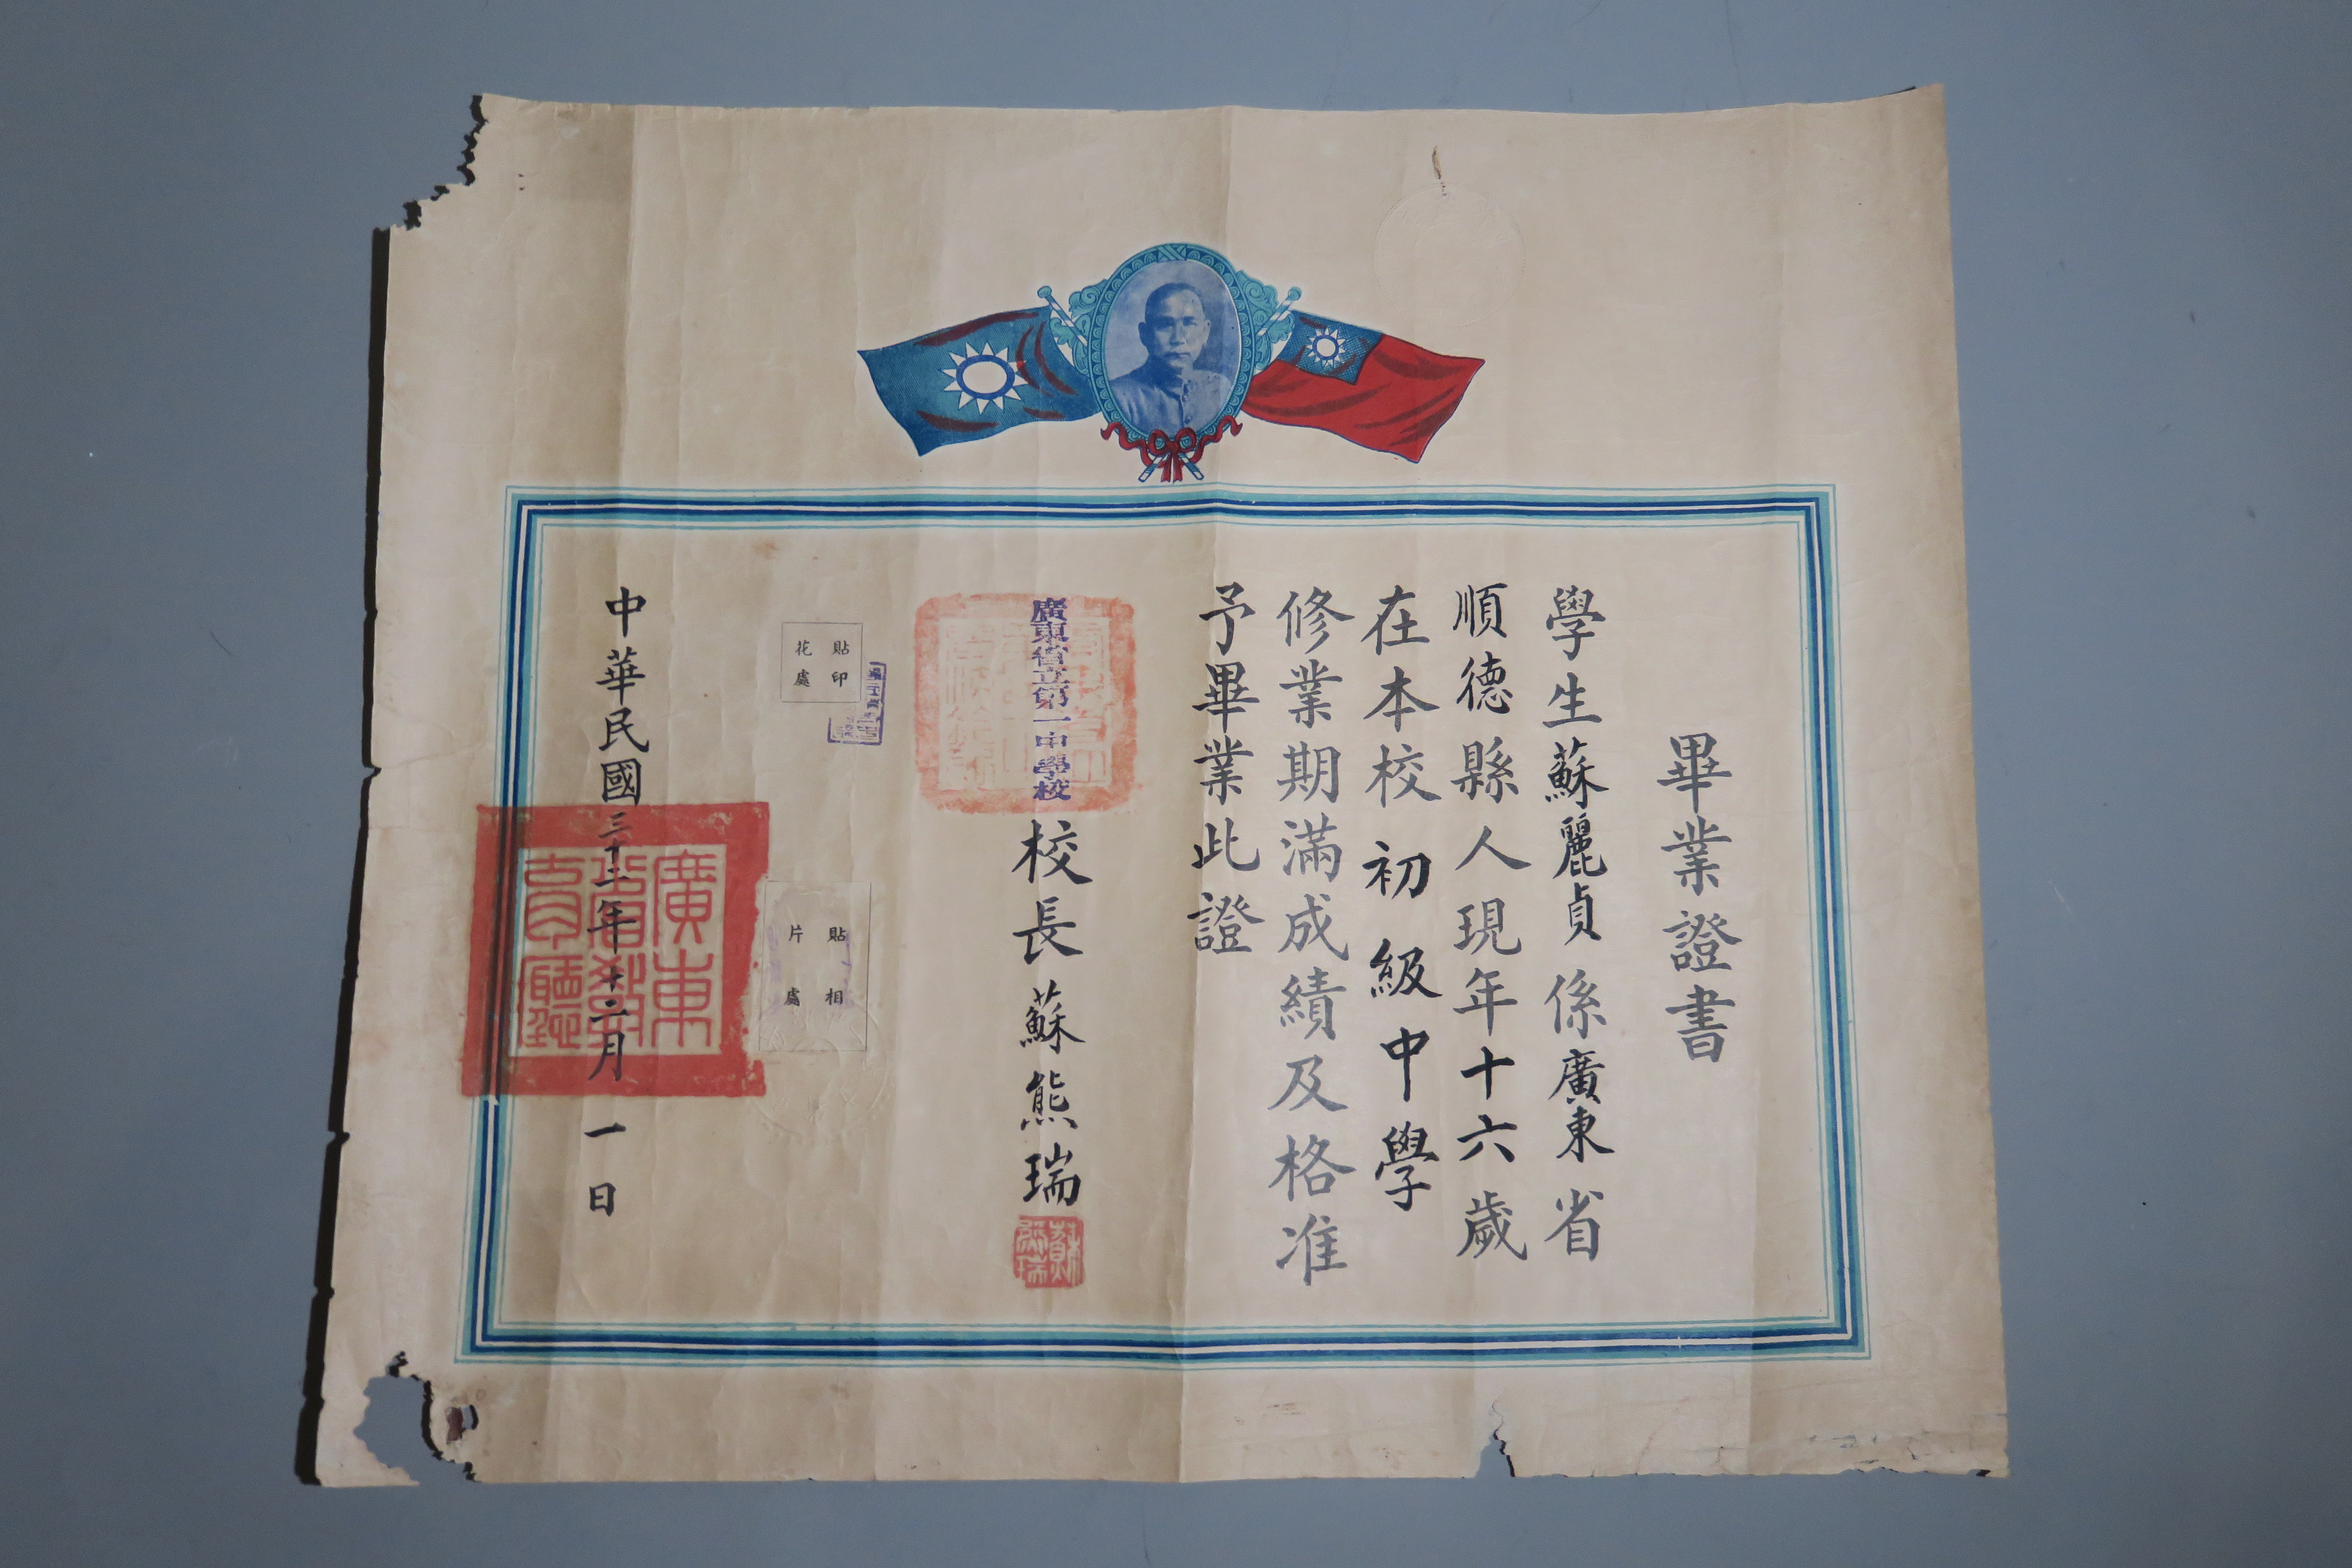 畢業證書
學生蘇麗貞係廣東省
順德縣人現年十六歲
在本校初級中學
修業期滿成績及格准
予畢業此證
廣東省立第一中學校
校長蘇熊瑞
蘇熊瑞
貼印
花處
貼相
片處
中華民國三十二年十二月一日
廣東
省教
育廳